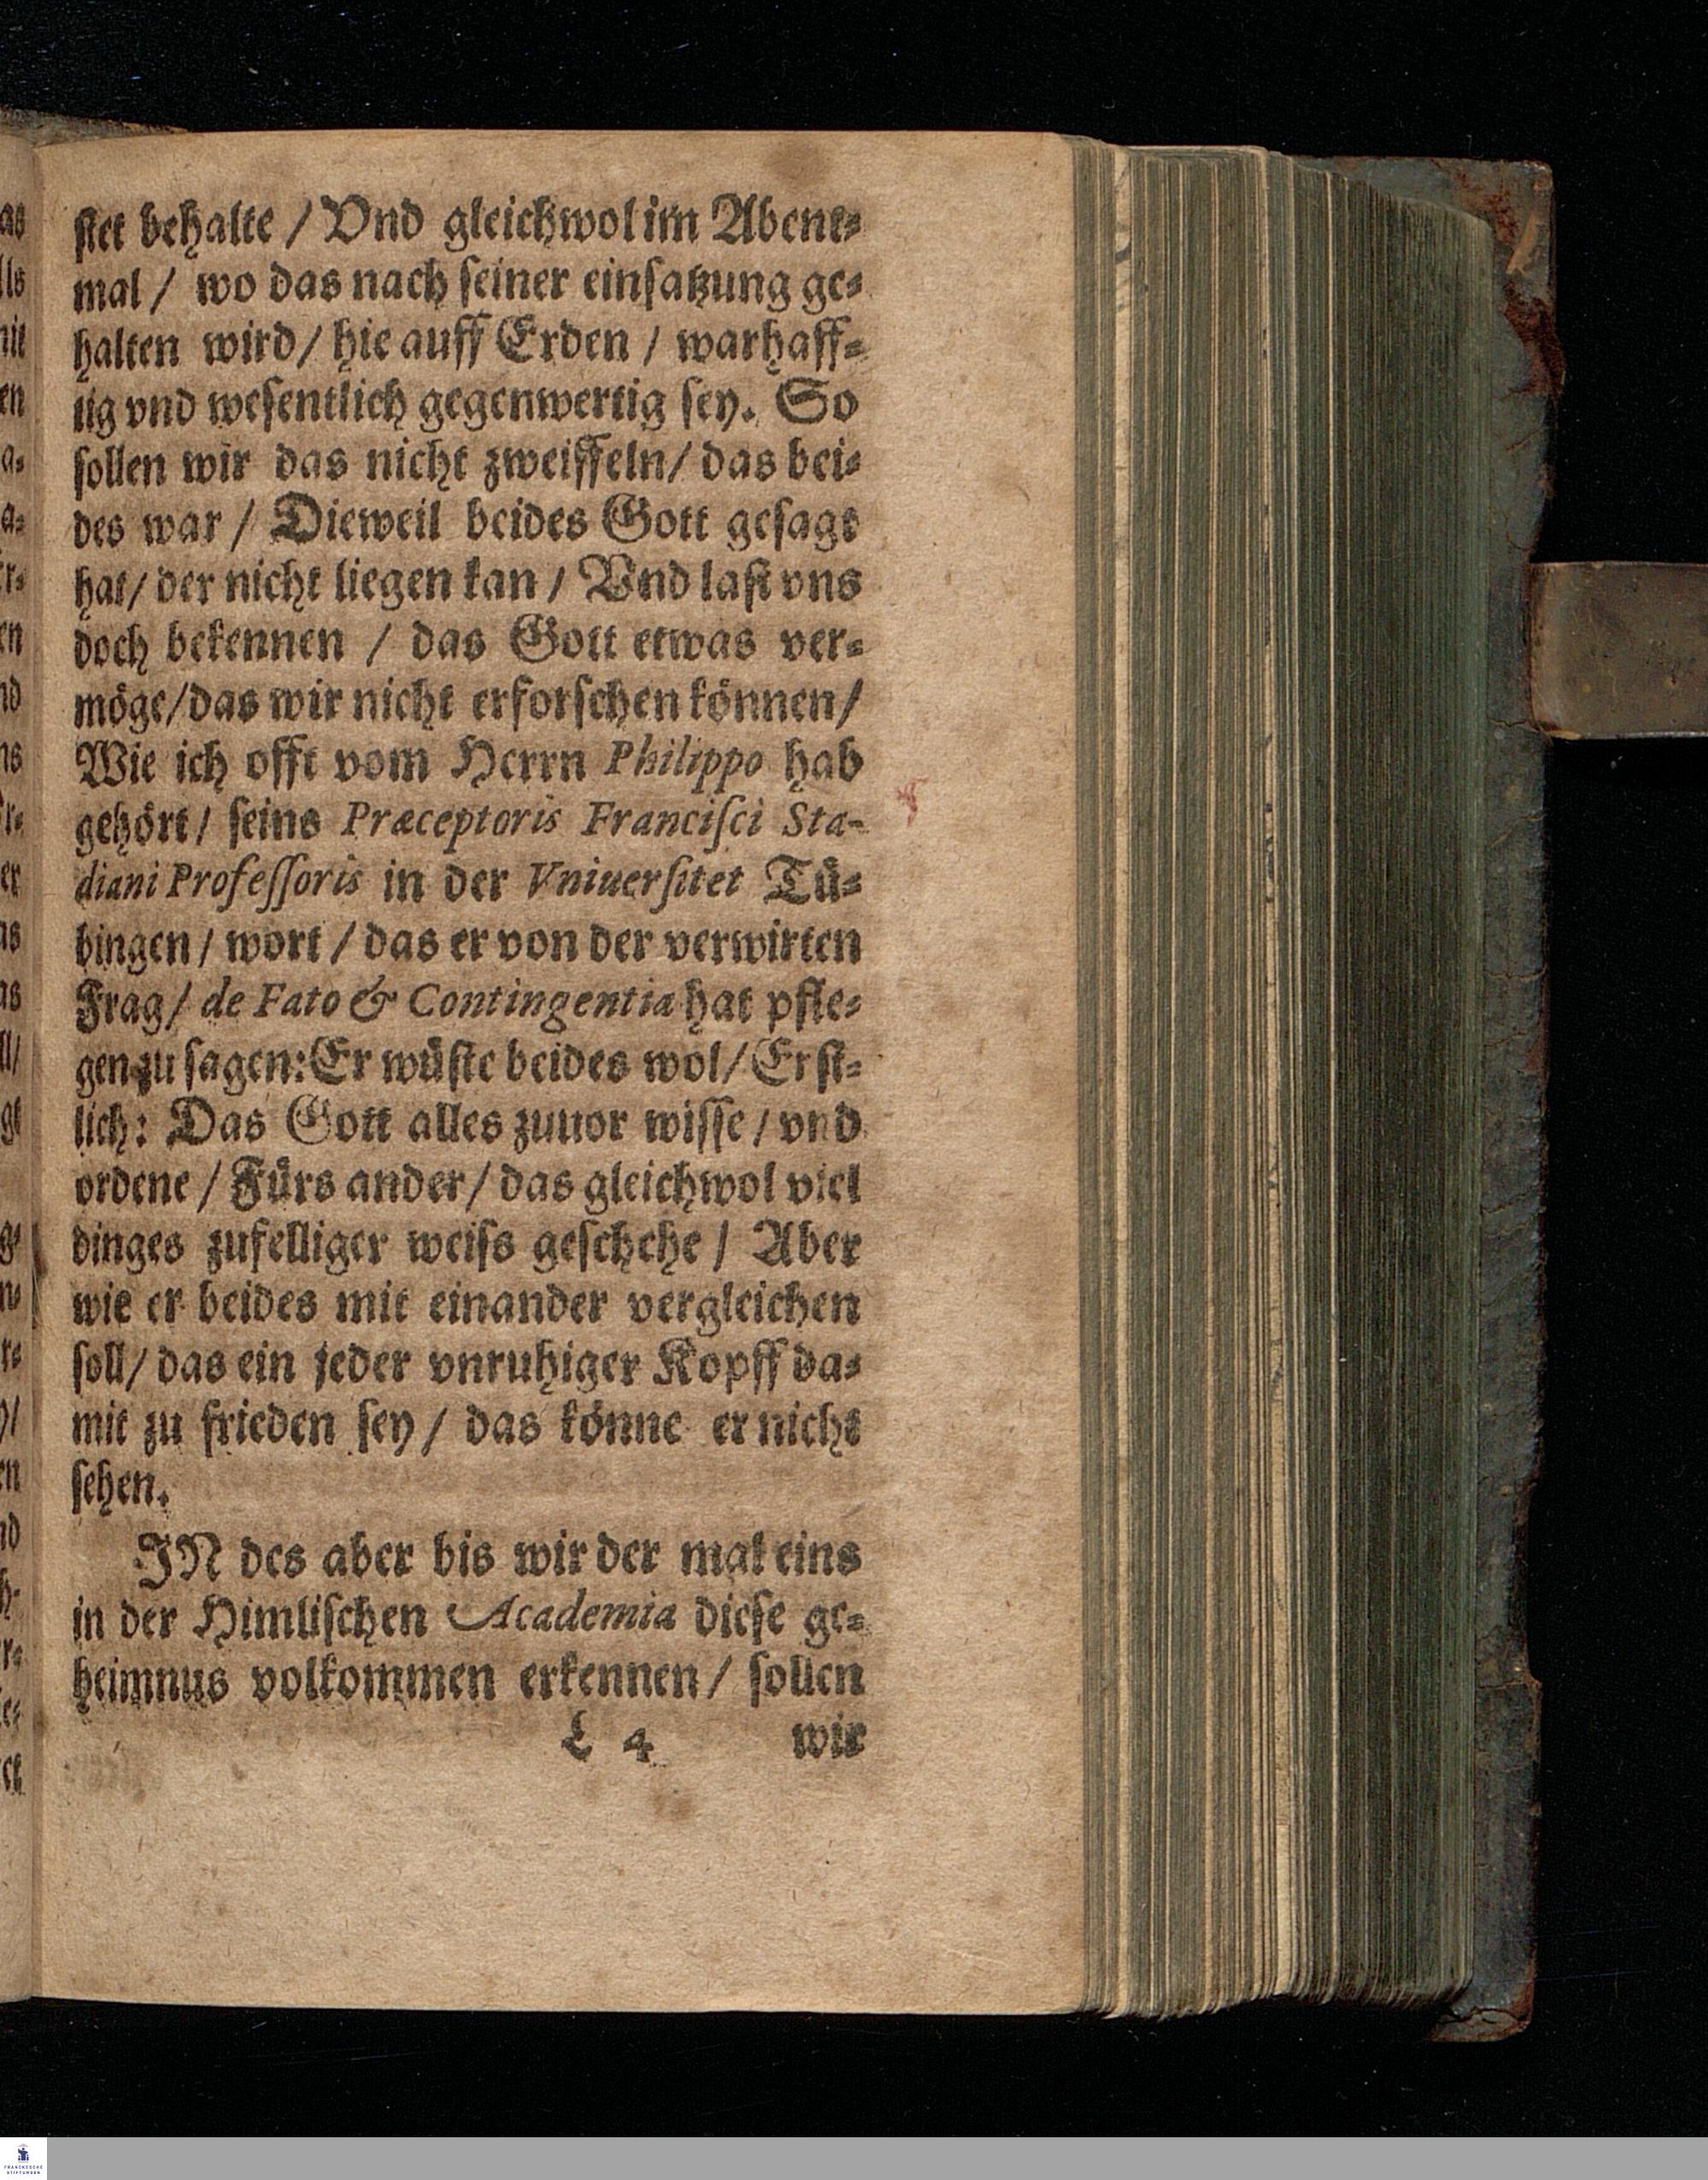 ſtet behalte / Vnd gleichwol im Abent⸗
mal / wo das nach ſeiner einſatzung ge⸗
halten wird / hie auff Erden / warhaff⸗
tig vnd weſentlich gegenwertig ſey. So
ſollen wir das nicht zweiffeln / das bei⸗
des war / Dieweil beides Gott geſagt
hat / der nicht liegen kan / Vnd laſt vns
doch bekennen / das Gott etwas ver⸗
möge / das wir nicht erforſchen können /
Wie ich offt vom Herrn Philippo hab
gehört / ſeins Præceptoris Franciſci Sta-
diani Profeſſoris in der Vniuerſitet Tü⸗
bingen / wort / das er von der verwirten
Frag / de Fato & Contingentia hat pfle⸗
gen zu ſagen: Er wüſte beides wol / Erſt⸗
lich: Das Gott alles zuuor wiſſe / vnd
ordene / Fürs ander / das gleichwol viel
dinges zufelliger weiſs geſchehe / Aber
wie er beides mit einander vergleichen
ſoll / das ein jeder vnruhiger Kopff da⸗
mit zu frieden ſey / das könne er nicht
ſehen.
IN des aber bis wir der mal eins
in der Himliſchen Academia dieſe ge⸗
heimnus volkommen erkennen / ſollen
L 4 wir
FRANCKESCHE
STIFTUNGEN